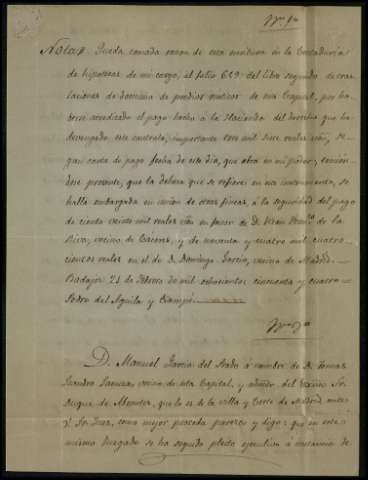 Nº 1º
Nota// Queda tomada razon de esta escritura en la Contaduria
de hipotecas de mi cargo, al folio 629 del libro segundo de tras
laciones de dominio de predios rusticos de esta Capital, por ha
berse acreditado el pago hecho a la Hacienda del derecho que ha
devengado este contrato, importante tres mil siete reales vón, se
gun carta de pago fecha de este dia, que obra en mi poder; tenien
dose presente, que la dehesa que se refiere en este instrumento, se
halla embargada en union de otras fincas, á la seguridad del pago
de ciento veinte mil reales vón en favor de D. Juan de la
Riva, vecino de Caceres, y de noventa y cuatro mil cuatro
cientos reales en el de D. Domingo Garcia, vecino de Madrid.
Badajoz 21 de Febrero de mil ochocientos cincuenta y cuatro
Pedro del Aguila y
D. Manuel Garcia del Prado á nombre de D. Tomas
vecino de esta Capital, y del Excmo Sr.
Duque de que lo es de la villa y Corte de Madrid ante
V. Sr. Juez, como mejor proceda parezco y digo: que en este
mismo Juzgado se ha seguido pleito ejecutivo á instancia de